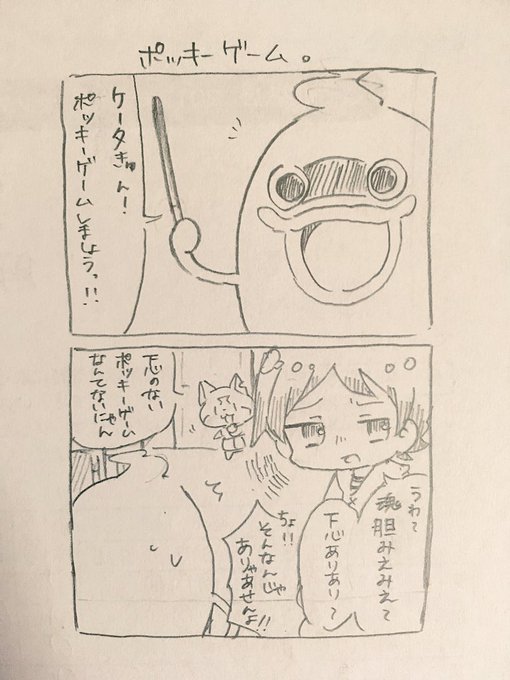 ポッキーゲーム。
ケータきゅん!
ポッキーゲームしましょうっ!!
うわ〜
魂胆みえみえ〜
下心ありあり〜
ちょ!!
そんなんじゃ
ありゃあせんよ!!
下心のない
ポッキーゲーム
なんてないにゃん